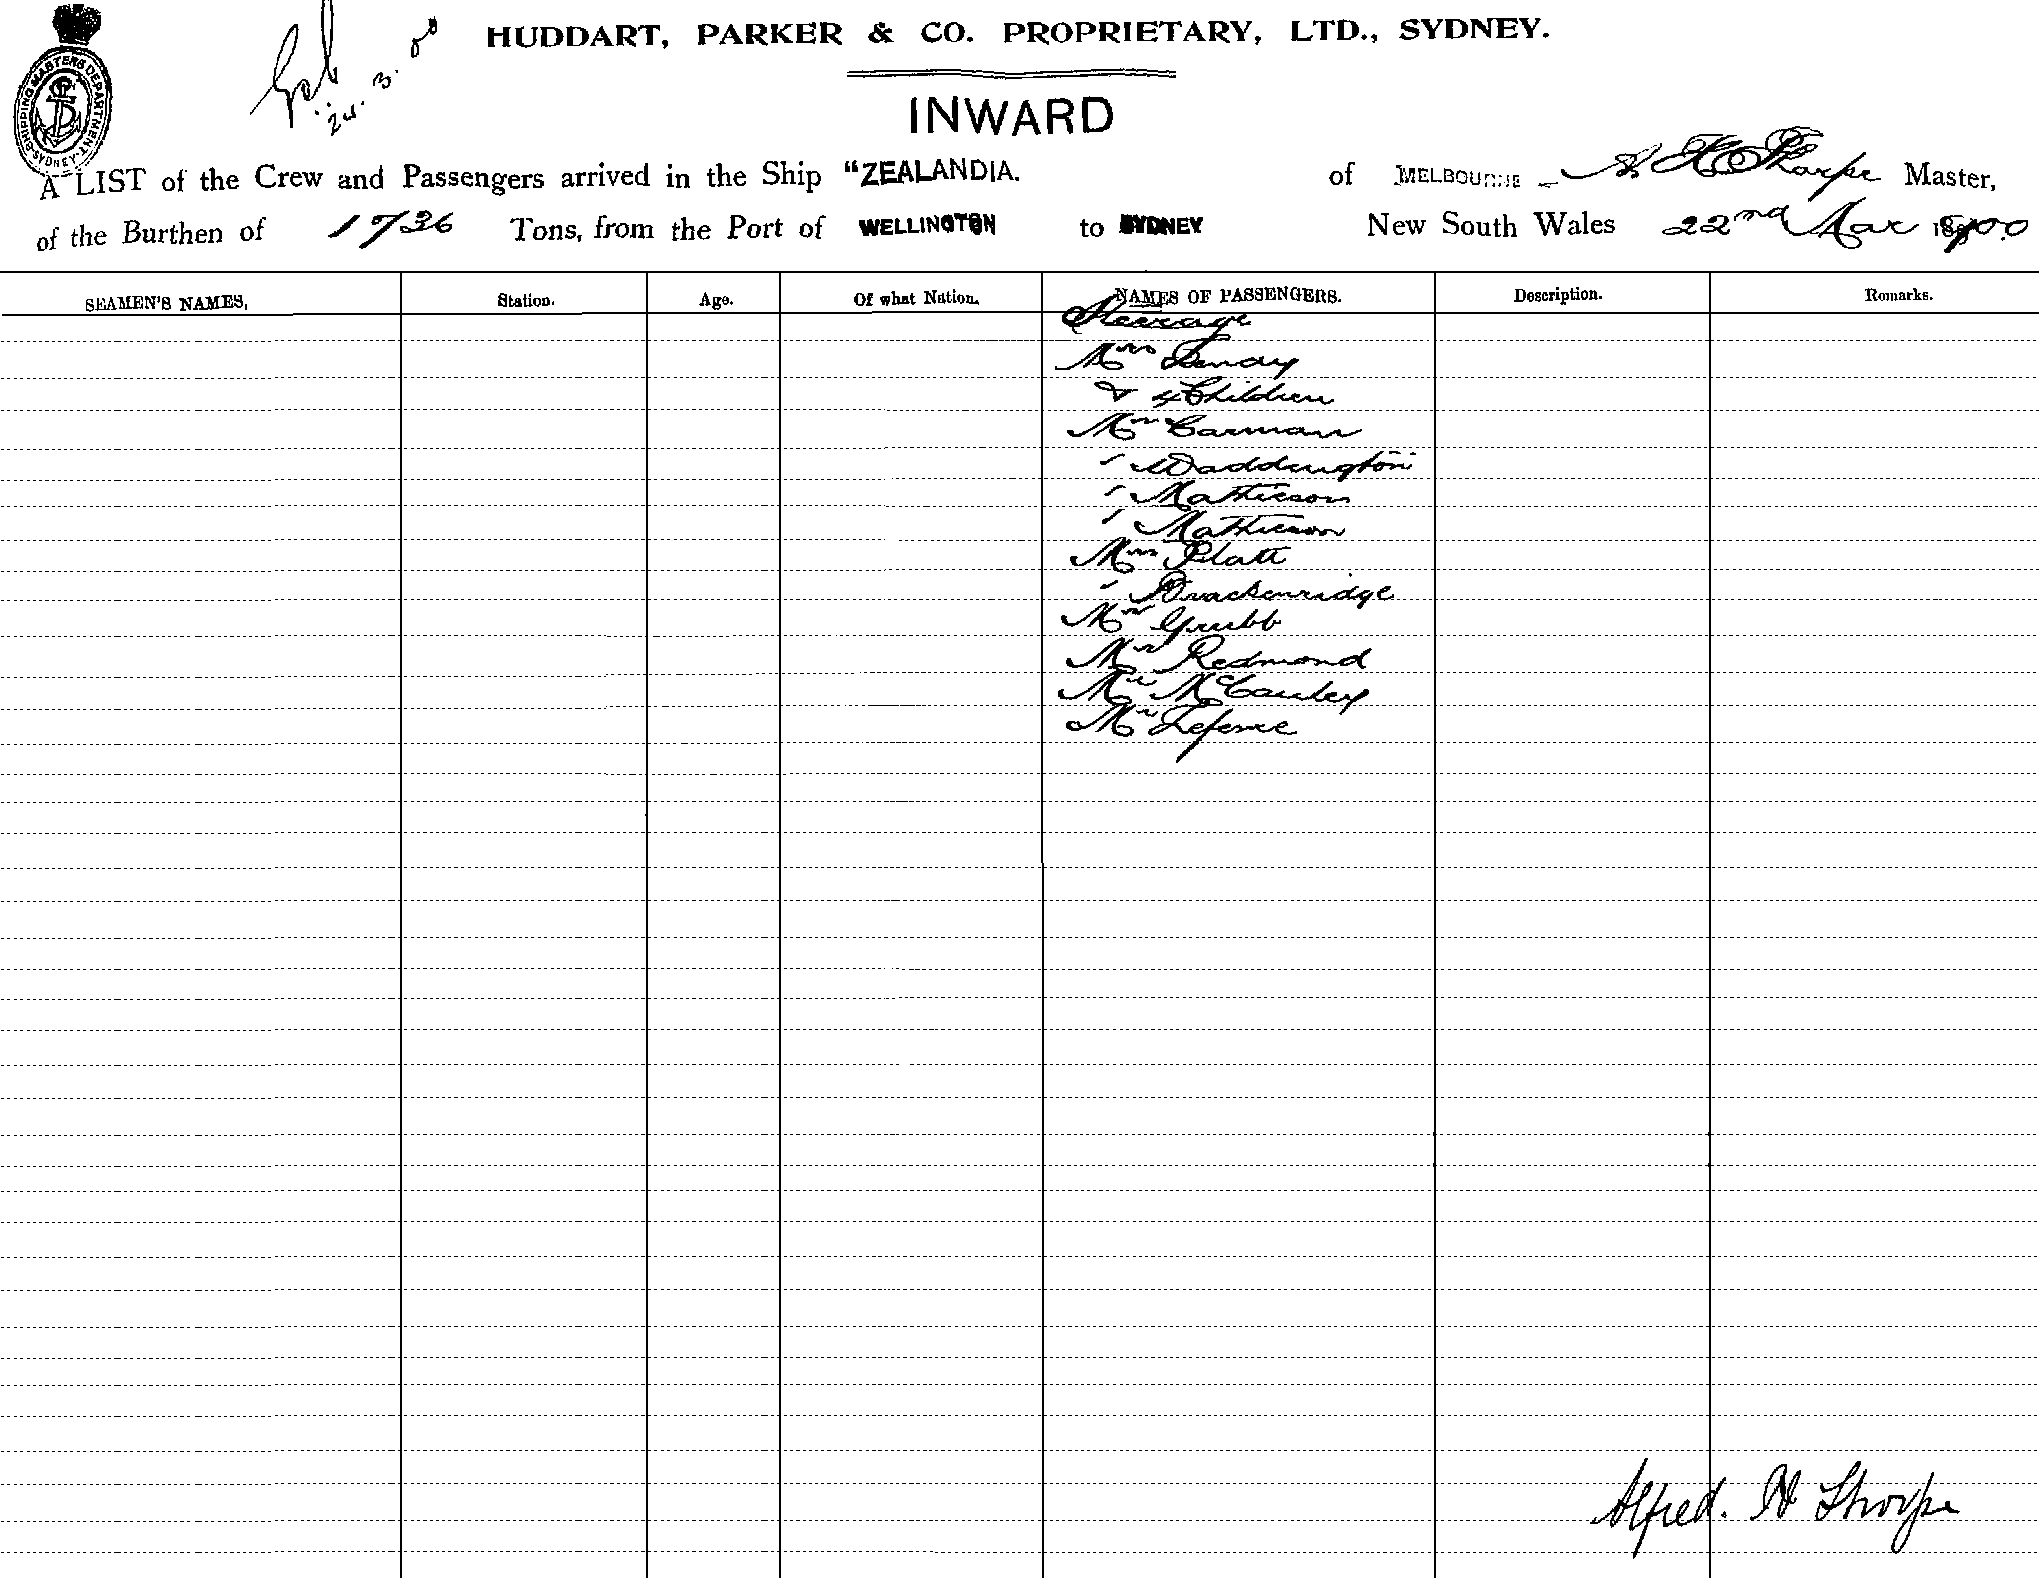 HUDDART, PARKER & CO. PROPRIETARY, LTD., SYDNEY.
24.3.00
INWARD
SHIPPING MASTERS DEPARTMENT SYDNEY
A LIST of the Crew and Passengers arrived in the Ship "ZEALANDIA. of MELBOURNE A H Thorpe Master,
of the Burthen of 1736 Tons, from the Port of WELLINGTON to SYDNEY New South Wales 22nd Mar 1900.
SEAMEN'S NAMES, Station. Age. Of what Nation. NAMES OF PASSENGERS. Description. Remarks.
Steerage
Mrs
& 4 Children
Mr Carman
" Waddington
" Mathieson
" Mathieson
Mrs Platt
" Brackenridge
Mr Grubb
Mr Redmond
Mr McCauley
Mr
Alfred. H Thorpe